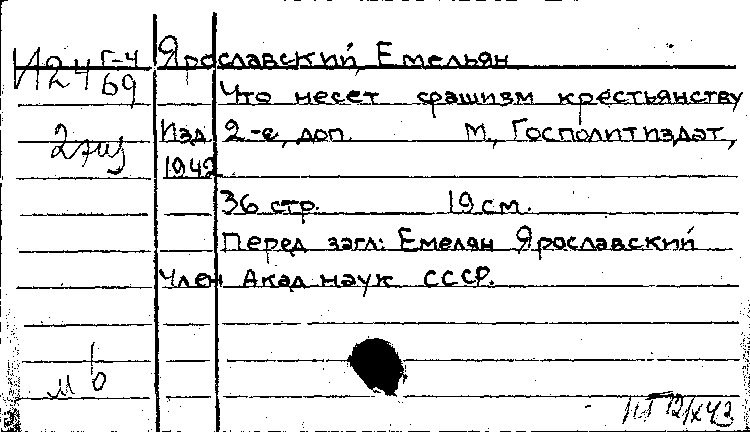 Ярославский, Емельян
И24 Г-4
69
Что несет фашизм крестьянству
2 экз
Изд. 2-е, доп. М., Госполитиздат,
1942
36 стр. 19 см.
Перед загл: Емелян Ярославский
Член Акад наук СССР.